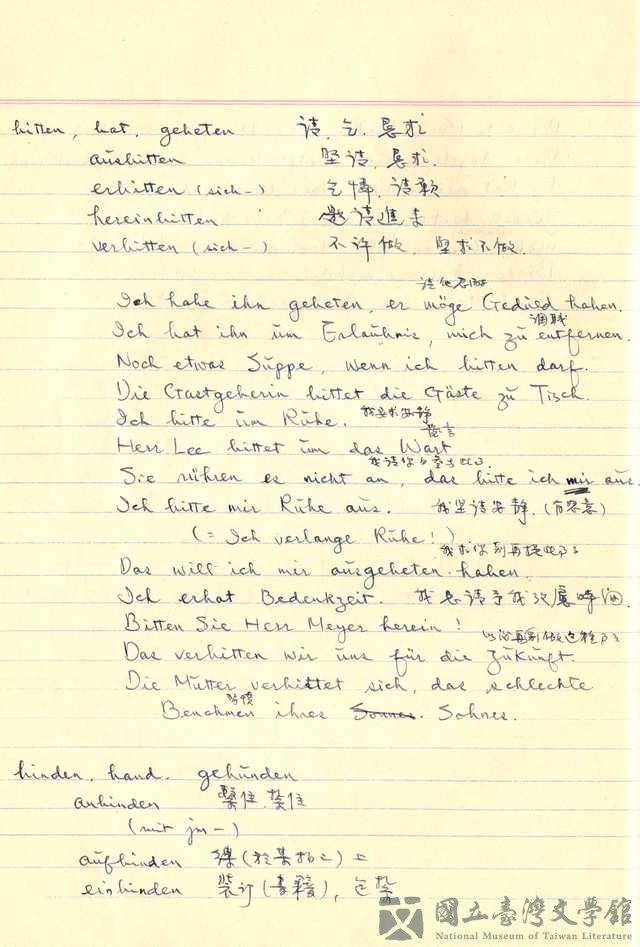 bitten, bat, gebeten 请, 乞, 恳求
ausbitten 坚请, 恳求
erbitten (sich –) 乞怜, 请
hereinbitten 邀请進来
verbitten (sich –) 不许做, 坚求不做.
请他忍耐
Ich habe ihn gebeten, er möge Geduld haben.
调职
Ich bat ihn ŭm Erlaŭbnis, mich zŭ entfernen.
Noch etwas Sŭppe, wenn ich bitten darf.
Die Gastgeberin bittet die Gäste zŭ Tisch.
Ich bitte ŭm Rŭhe. 我要求安静
發言
Herr Lee bittet ŭm das Wort
我请你勿
Sie rühren es nicht an, das bitte ich mir aŭs.
Ich bitte mir Rŭhe aŭs. 我坚请安静.
(= Ich verlange Rŭhe!)
我求你别再提
Das will ich mir aŭsgebeten haben.
Ich erbat Bedenkzeit. 我恳请予我
Bitten Sie Herr Meyer herein!
以后再别做这种
Das verbitten wir ŭns für die Zŭkŭnft.
Die Mŭtter verbittet sich, das schlechte
Benehmen ihres Sohnes.
binden, band, gebŭnden
anbinden 繫住
(mit jm –)
aŭfbinden
einbinden 装订
國立臺灣文學館
National Museum of Taiwan Literature